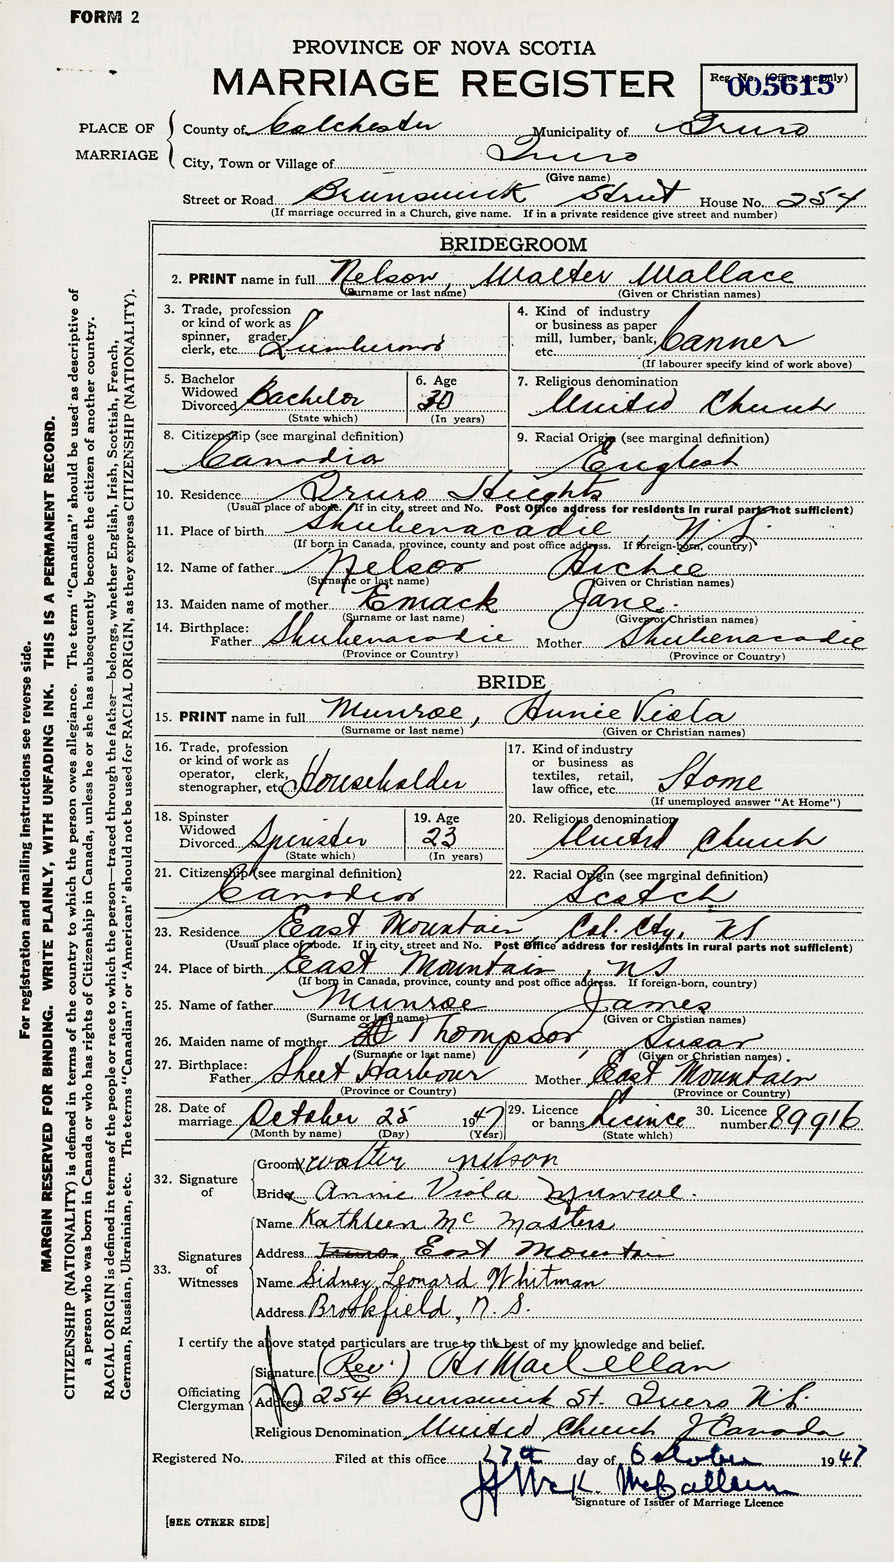 FORM 2
PROVINCE OF NOVA SCOTIA
MARRIAGE REGISTER
Reg. No. (Office use only)
005615
PLACE OF MARRIAGE
County of Colchester Municipality of Truro
City, Town or Village of Truro
(Give name)
Street or Road Brunswick Street House No. 254
(If marriage occurred in a Church, give name. If in a private residence give street and number)
BRIDEGROOM
2. PRINT name in full Nelson, Walter Wallace
(Surname or last name) (Given or Christian names)
3. Trade, profession or kind of work as spinner, grader, clerk, etc.
4. Kind of industry or business as paper mill, lumber, bank, etc. Canner
(If labourer specify kind of work above)
5. Bachelor Widowed Divorced Bachelor
(State which)
6. Age 30
(In years)
7. Religious denomination
United Church
8. Citizenship (see marginal definition)
Canadia
9. Racial Origin (see marginal definition)
English
10. Residence Truro Heights
(Usual place of abode. If in city, street and No. Post Office address for residents in rural parts not sufficient)
11. Place of birth Shubenacadie, N.S.
(If born in Canada, province, county and post office address. If foreign-born, country)
12. Name of father Nelson
(Surname or last name) (Given or Christian names)
13. Maiden name of mother Emack Jane.
(Surname or last name) (Give or Christian names)
14. Birthplace: Father Shubenacadie Mother Shubenacadie
(Province or Country) (Province or Country)
BRIDE
15. PRINT name in full Munroe, Annie Viola
(Surname or last name) (Given or Christian names)
16. Trade, profession or kind of work as operator, clerk, stenographer, etc. Householder
17. Kind of industry or business as textiles, retail, law office, etc. Home
(If unemployed answer "At Home")
18. Spinster Widowed Divorced Spinster
(State which)
19. Age 23
(In years)
20. Religious denomination
United Church
21. Citizenship (see marginal definition)
Canadian
22. Racial Origin (see marginal definition)
Scotch
23. Residence East Mountain, Col. Cty, NS
(Usual place of abode. If in city, street and No. Post Office address for residents in rural parts not sufficient)
24. Place of birth East Mountain, NS
(If born in Canada, province, county and post office address. If foreign-born, country)
25. Name of father Munroe James
(Surname or last name) (Given or Christian names)
26. Maiden name of mother Thompson, Susan
(Surname or last name) (Given or Christian names)
27. Birthplace: Father Sheet Harbour Mother East Mountain
(Province or Country) (Province or Country)
28. Date of marriage October 25 1947
(Month by name) (Day) (Year)
29. Licence or banns Licince
(State which)
30. Licence number 89916
32. Signature of
Groom x Walter Nelson
Bride x Annie Viola Munroe.
33. Signatures of Witnesses
Name Kathleen Mc Masters
Address Truro East Mountain
Name Sidney Leonard Whitman
Address Brookfield, N. S.
I certify the above stated particulars are true to the best of my knowledge and belief.
Officiating Clergyman
Signature (Rev.)
Address 254 Brunswick St. Truro N.S.
Religious Denomination United Church of Canada
Registered No. Filed at this office 27th day of October 1947
Signature of Issuer of Marriage Licence
[SEE OTHER SIDE]
For registration and mailing instructions see reverse side.
MARGIN RESERVED FOR BINDING. WRITE PLAINLY, WITH UNFADING INK. THIS IS A PERMANENT RECORD.
CITIZENSHIP (NATIONALITY) is defined in terms of the country to which the person owes allegiance. The term "Canadian" should be used as descriptive of
a person who was born in Canada or who has rights of Citizenship in Canada, unless he or she has subsequently become the citizen of another country.
RACIAL ORIGIN is defined in terms of the people or race to which the person—traced through the father—belongs, whether English, Irish, Scottish, French,
German, Russian, Ukrainian, etc. The terms "Canadian" or "American" should not be used for RACIAL ORIGIN, as they express CITIZENSHIP (NATIONALITY).